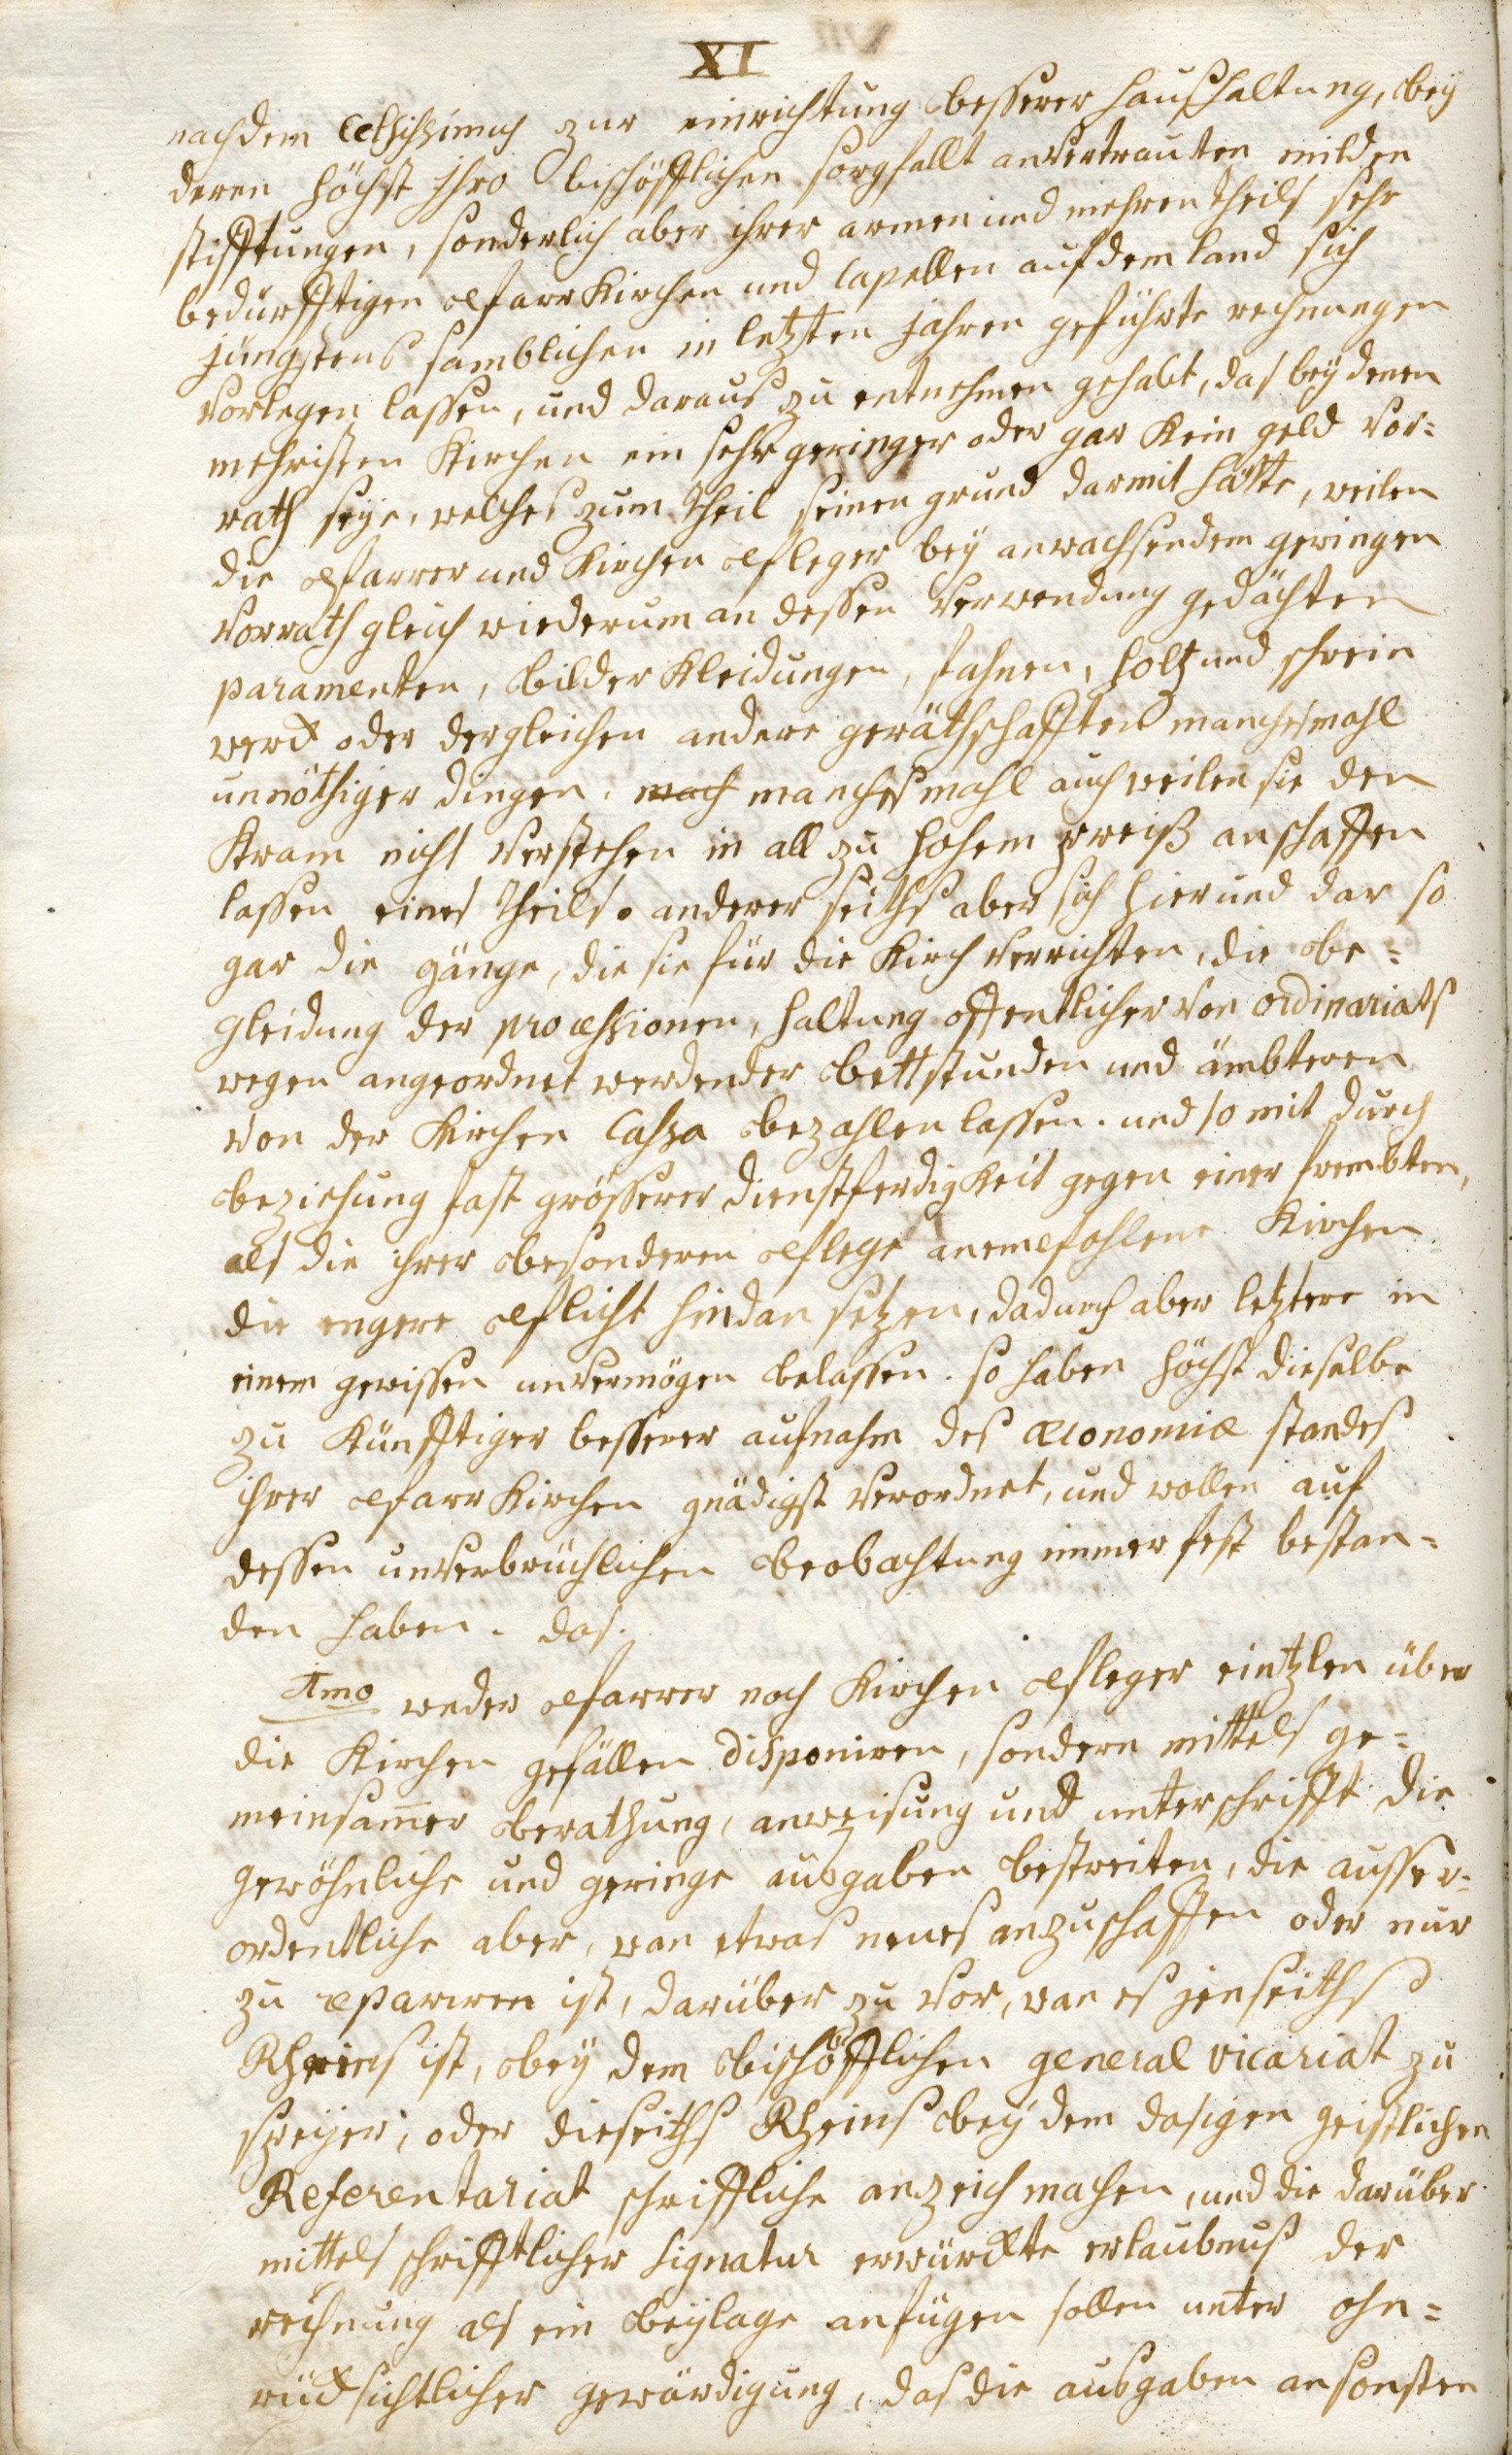 XI
nachdem Celsissimus zur einrichtung besserer haußhaltung, bey
deren höchst Ihro bischöfflichen sorgfallt anvertrauten milden
stifftungen, sonderlich aber ihrer armen und mehrentheils sehr
bedürfftigen pfarr Kirchen und Capellen auf dem land sich
jüngstens samblichen in letzten jahren geführte rechnungen
vorlegen lassen, und daraus zu entnehmen gehabt, das bey denen
mehristen Kirchen ein sehr geringer oder gar Kein geld vor=
rath seye, welches zum theil seinen grund darmit hätte, weilen
die pfarrer und Kirchen pfleger bey anwachsendem geringen
vorrath gleich wiederum an dessen verwendung gedächten
paramenten, bilder Kleidungen, fahnen, holtz und schrein
werck oder dergleichen andere geräthschafften manchesmahl
unnöthiger dingen, mach manchesmahl auch weilen sie den
Kram nicht verstehen in all zu hohem preiß anschaffen
lassen eines theils. anderer seiths aber sich hier und dar so
gar die gänge, die sie für die Kirch verrichten, die be=
gleidung der processionen, haltung offentlicher von ordinariats
wegen angeordnet werdender bettstunden und ämbteren
von der Kirchen Cassa bezahlen lassen. und somit durch
beziehung fast grösserer dienstferdigkeit gegen einer frembten,
als die ihrer besonderen pflege anempfohlene Kirchen
die engere pflicht hindan setzen, dadurch aber letztere in
einem gewissen unvermögen belassen. so haben höchst dieselbe
zu Künfftiger besserer aufnahm des œconomiæ standes
ihrer pfarr Kirchen gnädigst verordnet, und wollen auf
dessen unverbrüchlichen beobachtung immer fest bestan=
den haben. das.
1mo weder pfarrer noch Kirchen pfleger eintzlen über
die Kirchen gefällen disponiren, sondern mittels ge=
meinsam̄er berathung, anweisung und unterschrifft die
gewöhnliche und geringe ausgaben bestreiten, die ausser=
ordentliche aber, wan etwas neues anzuschaffen oder nur
zu repariren ist, darüber zu vor, wan es jenseiths
Rheins ist, bey dem bischöfflichen general vicariat zu
speyer, oder dieseiths Rheins bey dem dasigen geistlichen
Referentariat schriffliche anzeich machen, und die darüber
mittels schrifftlicher signatur erwürckte erlaubnus der
rechnung als ein beylage anfügen sollen unter ohn=
rücksichtlicher gewärdigung, das die ausgaben ansonsten